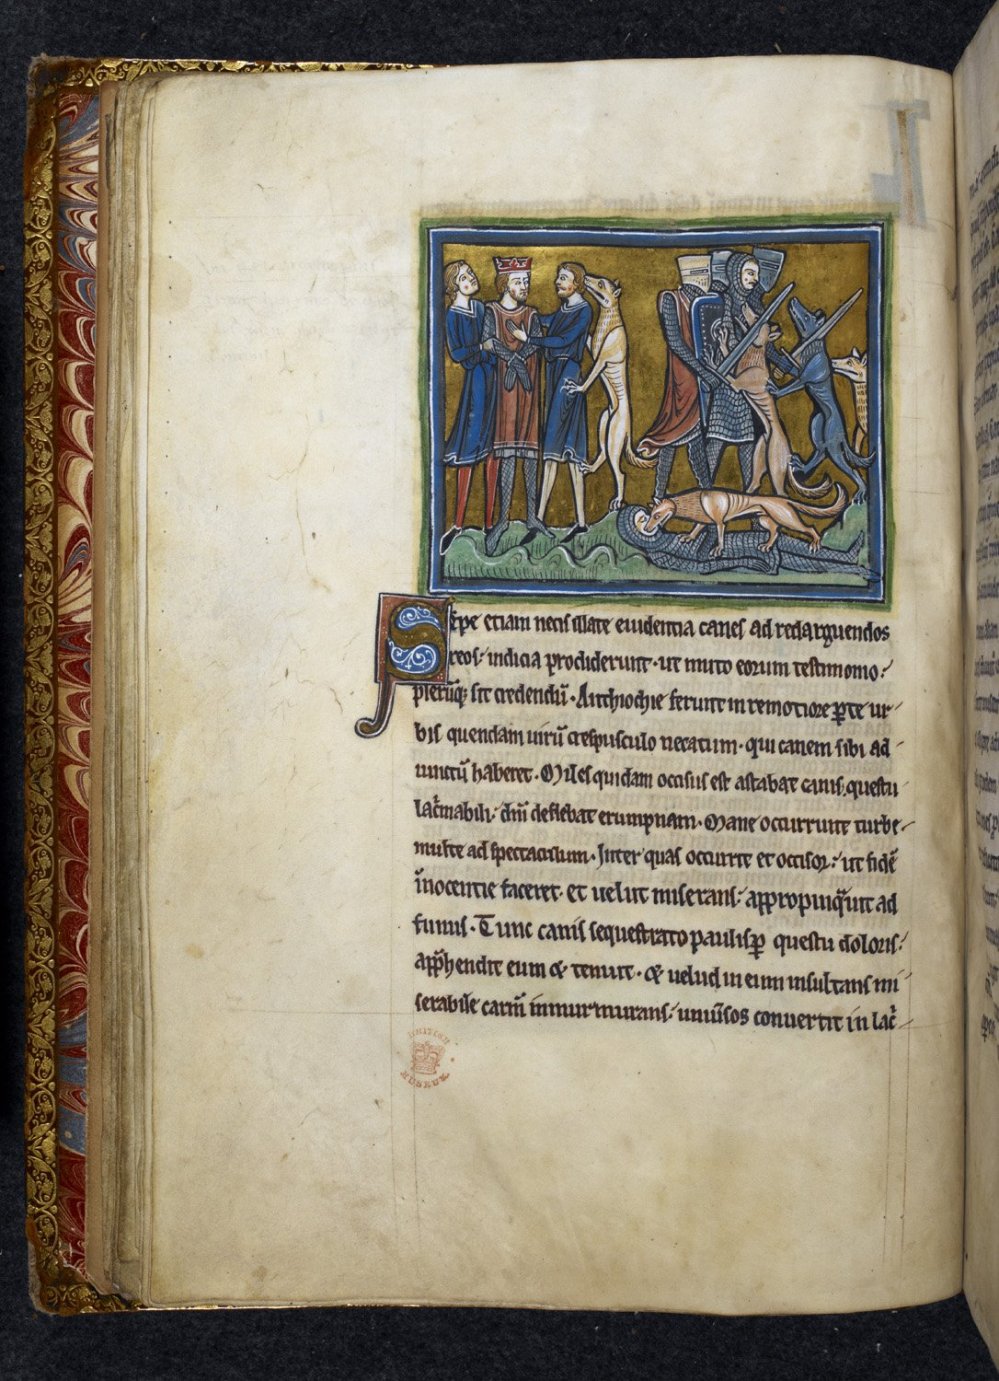 Sepe etiam necis illate euidentia canes ad redarguendos
reos· indicia prodiderunt· ut muto eorum testimonio·
pleruq; sit credendū· Anthiochie ferunt in remotiore ꝑte ur
bis quendam uirū crespusculo necatum· qui canem sibi ad
iunctū haberet· Miles quidam occisus est astabat canis questu
lac̄mabili· dn̄i deflebat erumpnam· Mane occurrunt turbe
multe ad spectaculum· Inter quas occurrit et occisor· ut fidē
īnocentie faceret· et uelut miserans· appropinq̄uit ad
funus· Tunc canis sequestrato paulisꝑ questu doloris·
app̄hendit eum & tenuit· & uelud in eum insultans mi
serabile carm̄ inmurmurans· uniūsos conuertit in lac̄
BRITISH
MUSEUM